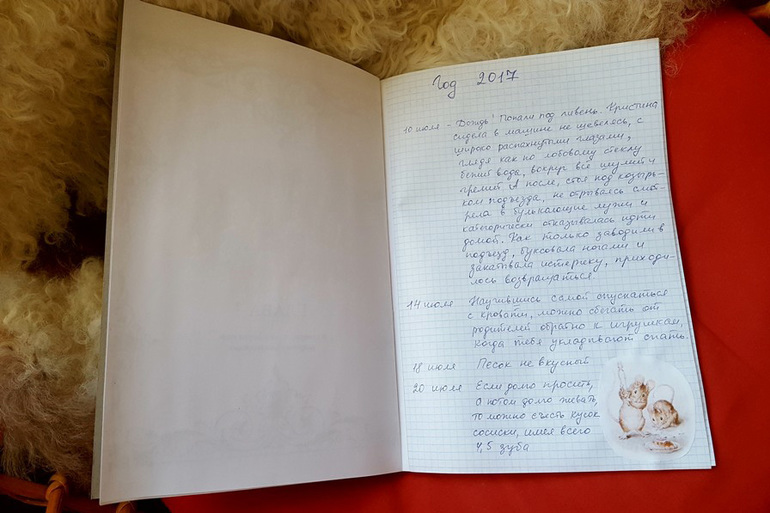 Год 2017
10 июля - Дождь! Попали под ливень. Кристина
сидела в машине не шевелясь, с
широко распахнутыми глазами,
глядя как по лобовому стеклу
бежит вода, вокруг всё шумит и
гремит. А после, стоя под козырь-
ком подъезда, не отрываясь смот-
рела в булькающие лужи и
категорически отказывалась идти
домой. Как только заводили в
подъезд, буксовала ногами и
закатывала истерику, приходи-
лось возвращаться
14 июля Научившись самой опускаться
с кровати, можно сбегать от
родителей обратно к игрушкам,
когда тебя укладывают спать.
18 июля Песок не вкусный
20 июля Если долго просить,
а потом долго жевать,
то можно съесть кусок
сосиски, имея всего
4,5 зуба